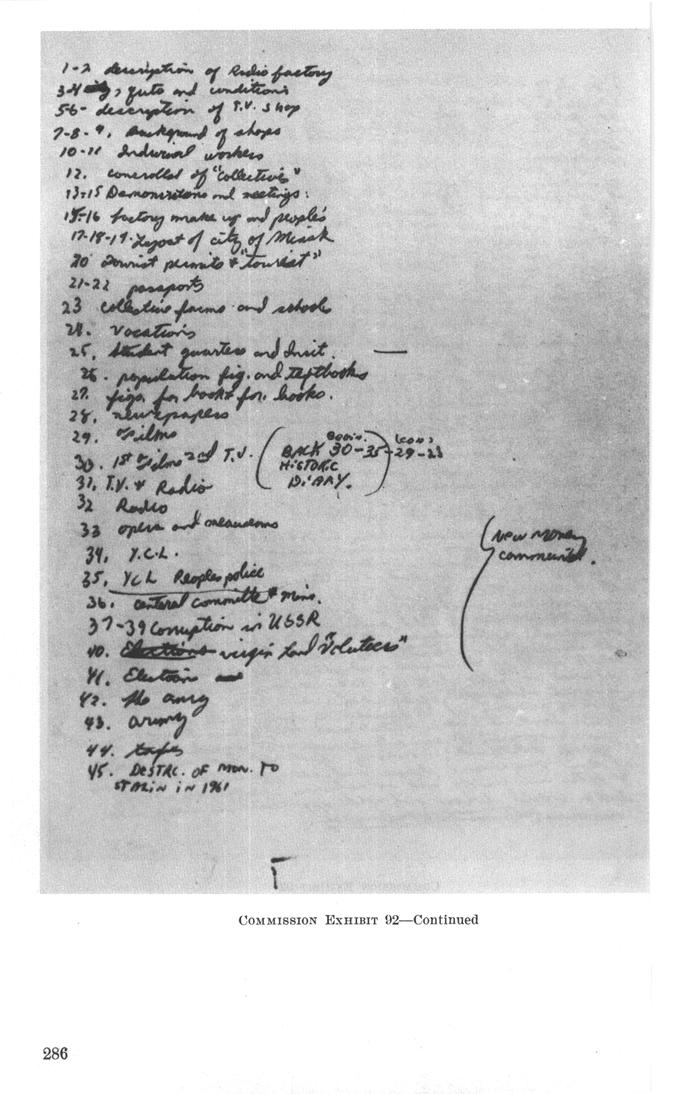 1-2 description of Radio factory
3-4 quto and conditions
5-6- description of T.V. shop
7-8-9, Background of shops
10-11 workers
12. controlled of "Collectives"
13-15 Demonstrations and meetings:
15-16 factory make up and peoples
17-18-19. Layout of city of Minsk
20 tourist permits & "tourist"
21-22 passports
23 collective farms and schools
24. vacations
25, student quarters and Insit. —
26. population fig. and textbooks
27. figs. for books for. books.
28, newspapers
29. Films
30. 1st Films 2nd T.V. (BACK 30-35)-29-28
HISTORIC
DIARY.
31, T.V. & Radio
32 Radio
33 opera and
34, Y.C.L.
35, YCL Peoples police
36. centeral committe & mins.
37-39 Corruption in USSR
40. Elections virgin land "Voluteers"
41. Elections
42. the army
43. army
44. tapes
45. DESTRC. OF MON. TO
STALIN IN 1961
New Money
COMMISSION EXHIBIT 92—Continued
286